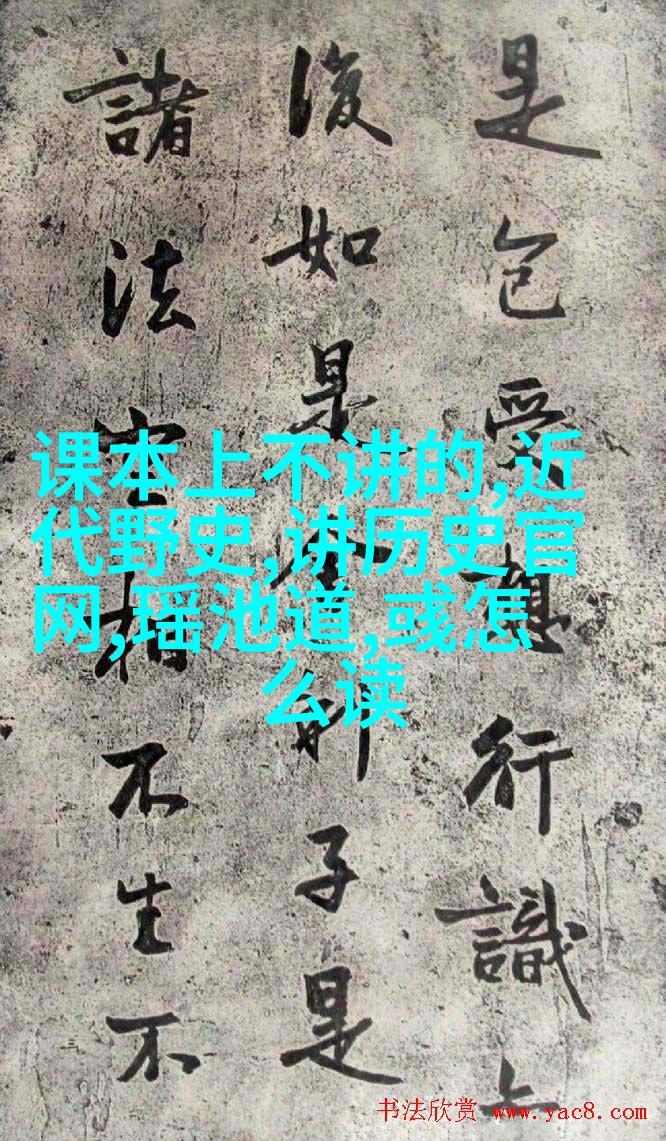 是色受想行識
復如是舍利子是
諸法空相不生不
课本上不讲的,近
代野史,讲历史官
网,瑶池道,彧怎
么读
书法欣赏 www.yac8.com